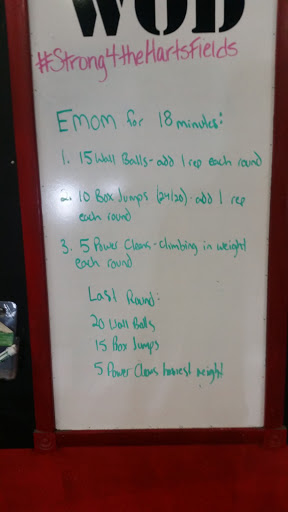 WOD
#Strong4theHartsFields
EMOM for 18 minutes:
1. 15 Wall Balls - add 1 rep each round
2. 10 Box Jumps (24/20) - add 1 rep
each round
3. 5 Power Cleans - climbing in weight
each round
Last Round:
20 Wall Balls
15 Box Jumps
5 Power Cleans heaviest weight